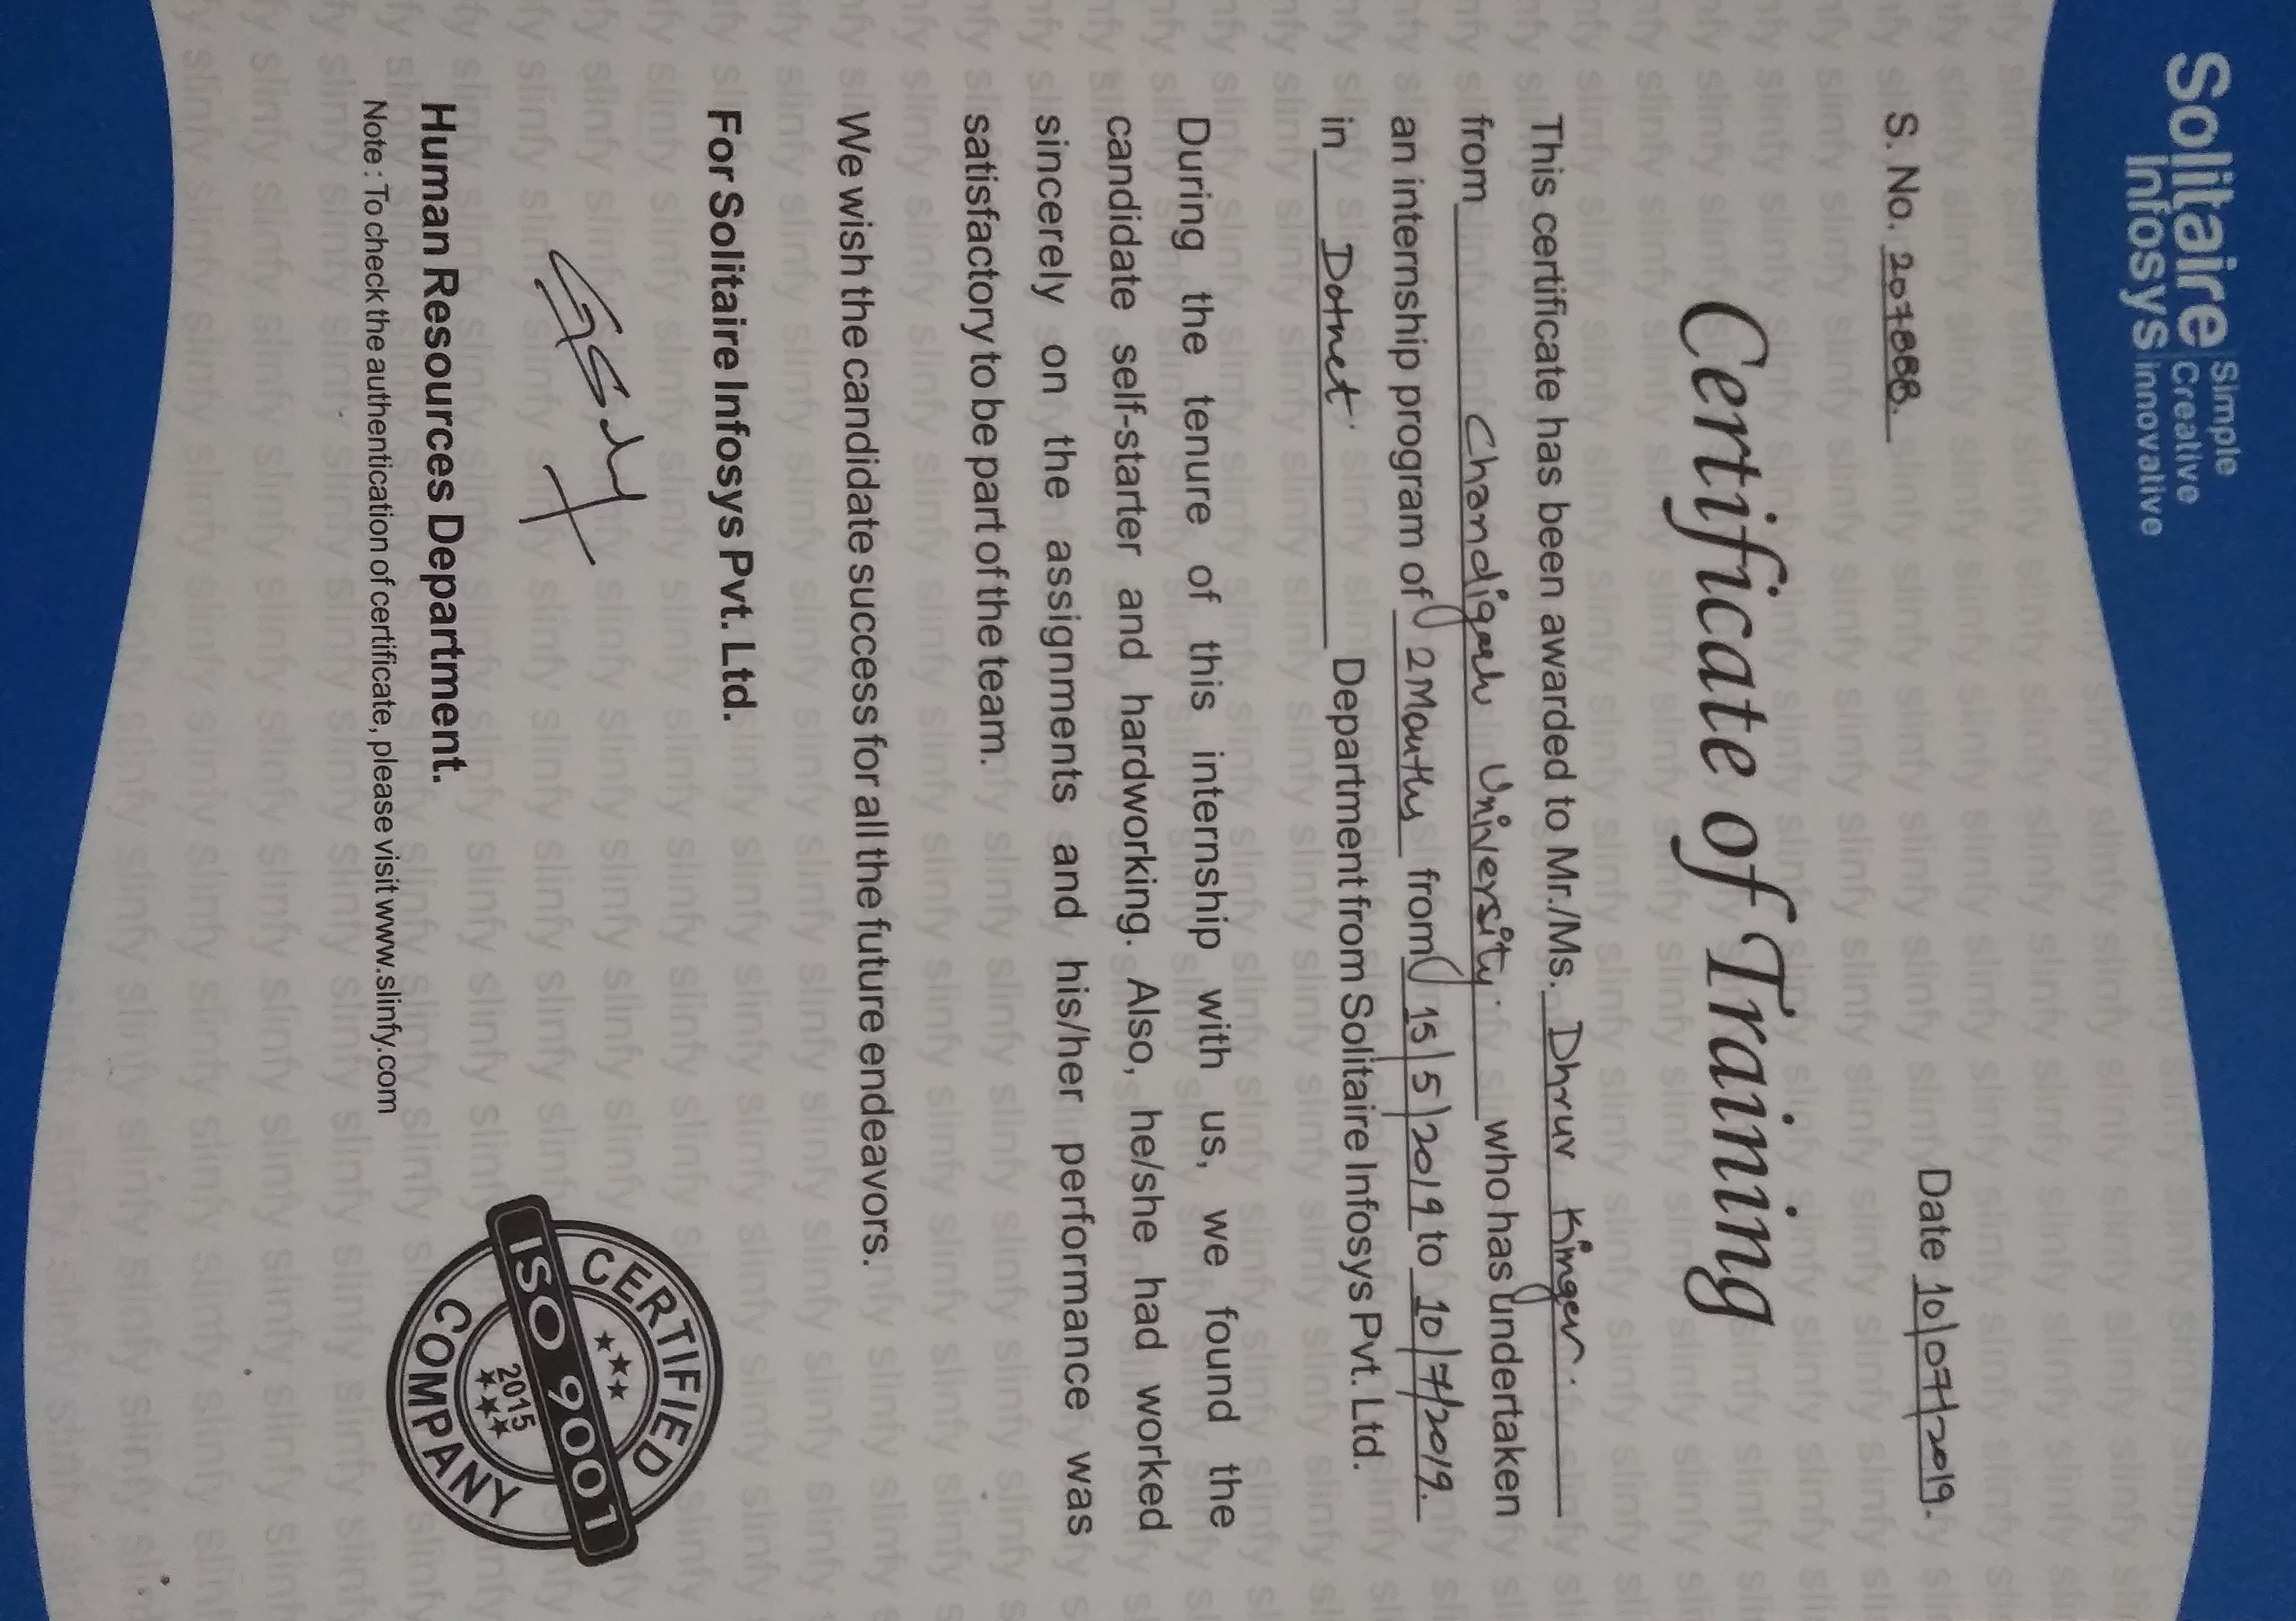 Solitaire Simple
Creative
Infosys innovative
S. No. 207888.
Date 10/07/2019.
Certificate of Training
This certificate has been awarded to Mr./Ms. Dhruv Kinger.
from Chandigarh University. who has undertaken
an internship program of 2 Months from 15/5/2019 to 10/7/2019.
in Dotnet Department from Solitaire Infosys Pvt. Ltd.
During the tenure of this internship with us, we found the
candidate self-starter and hardworking. Also, he/she had worked
sincerely on the assignments and his/her performance was
satisfactory to be part of the team.
We wish the candidate success for all the future endeavors.
For Solitaire Infosys Pvt. Ltd.
CERTIFIED
ISO 9001
2015
COMPANY
Human Resources Department.
Note : To check the authentication of certificate, please visit www.slinfy.com